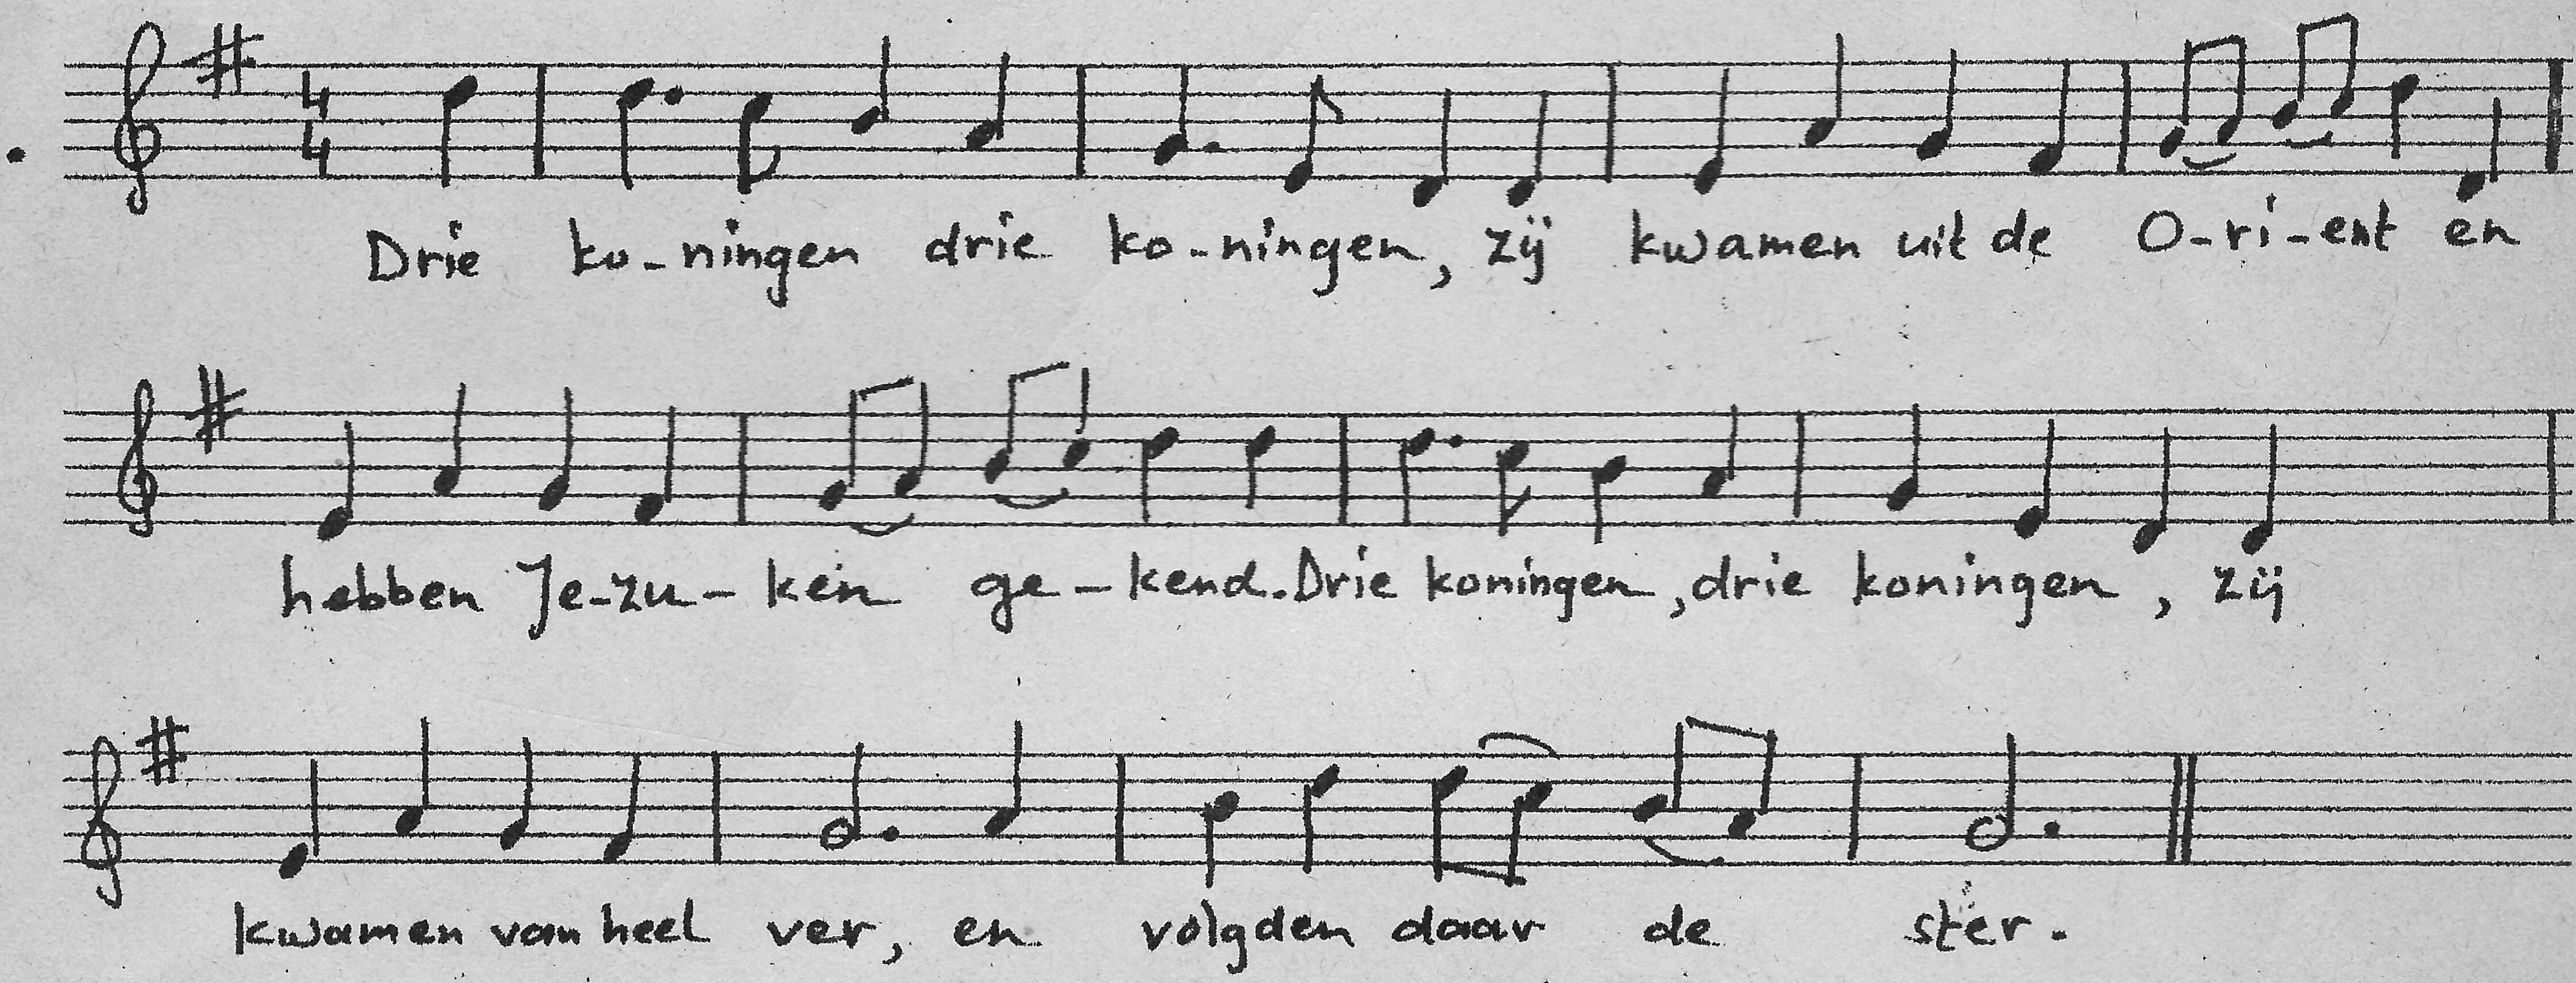 4
4
Drie ko-ningen drie ko-ningen, zij kwamen uit de O-ri-ent en
hebben Je-zu-ken ge-kend. Drie koningen, drie koningen, zij
kwamen van heel ver, en volgden daar de ster.